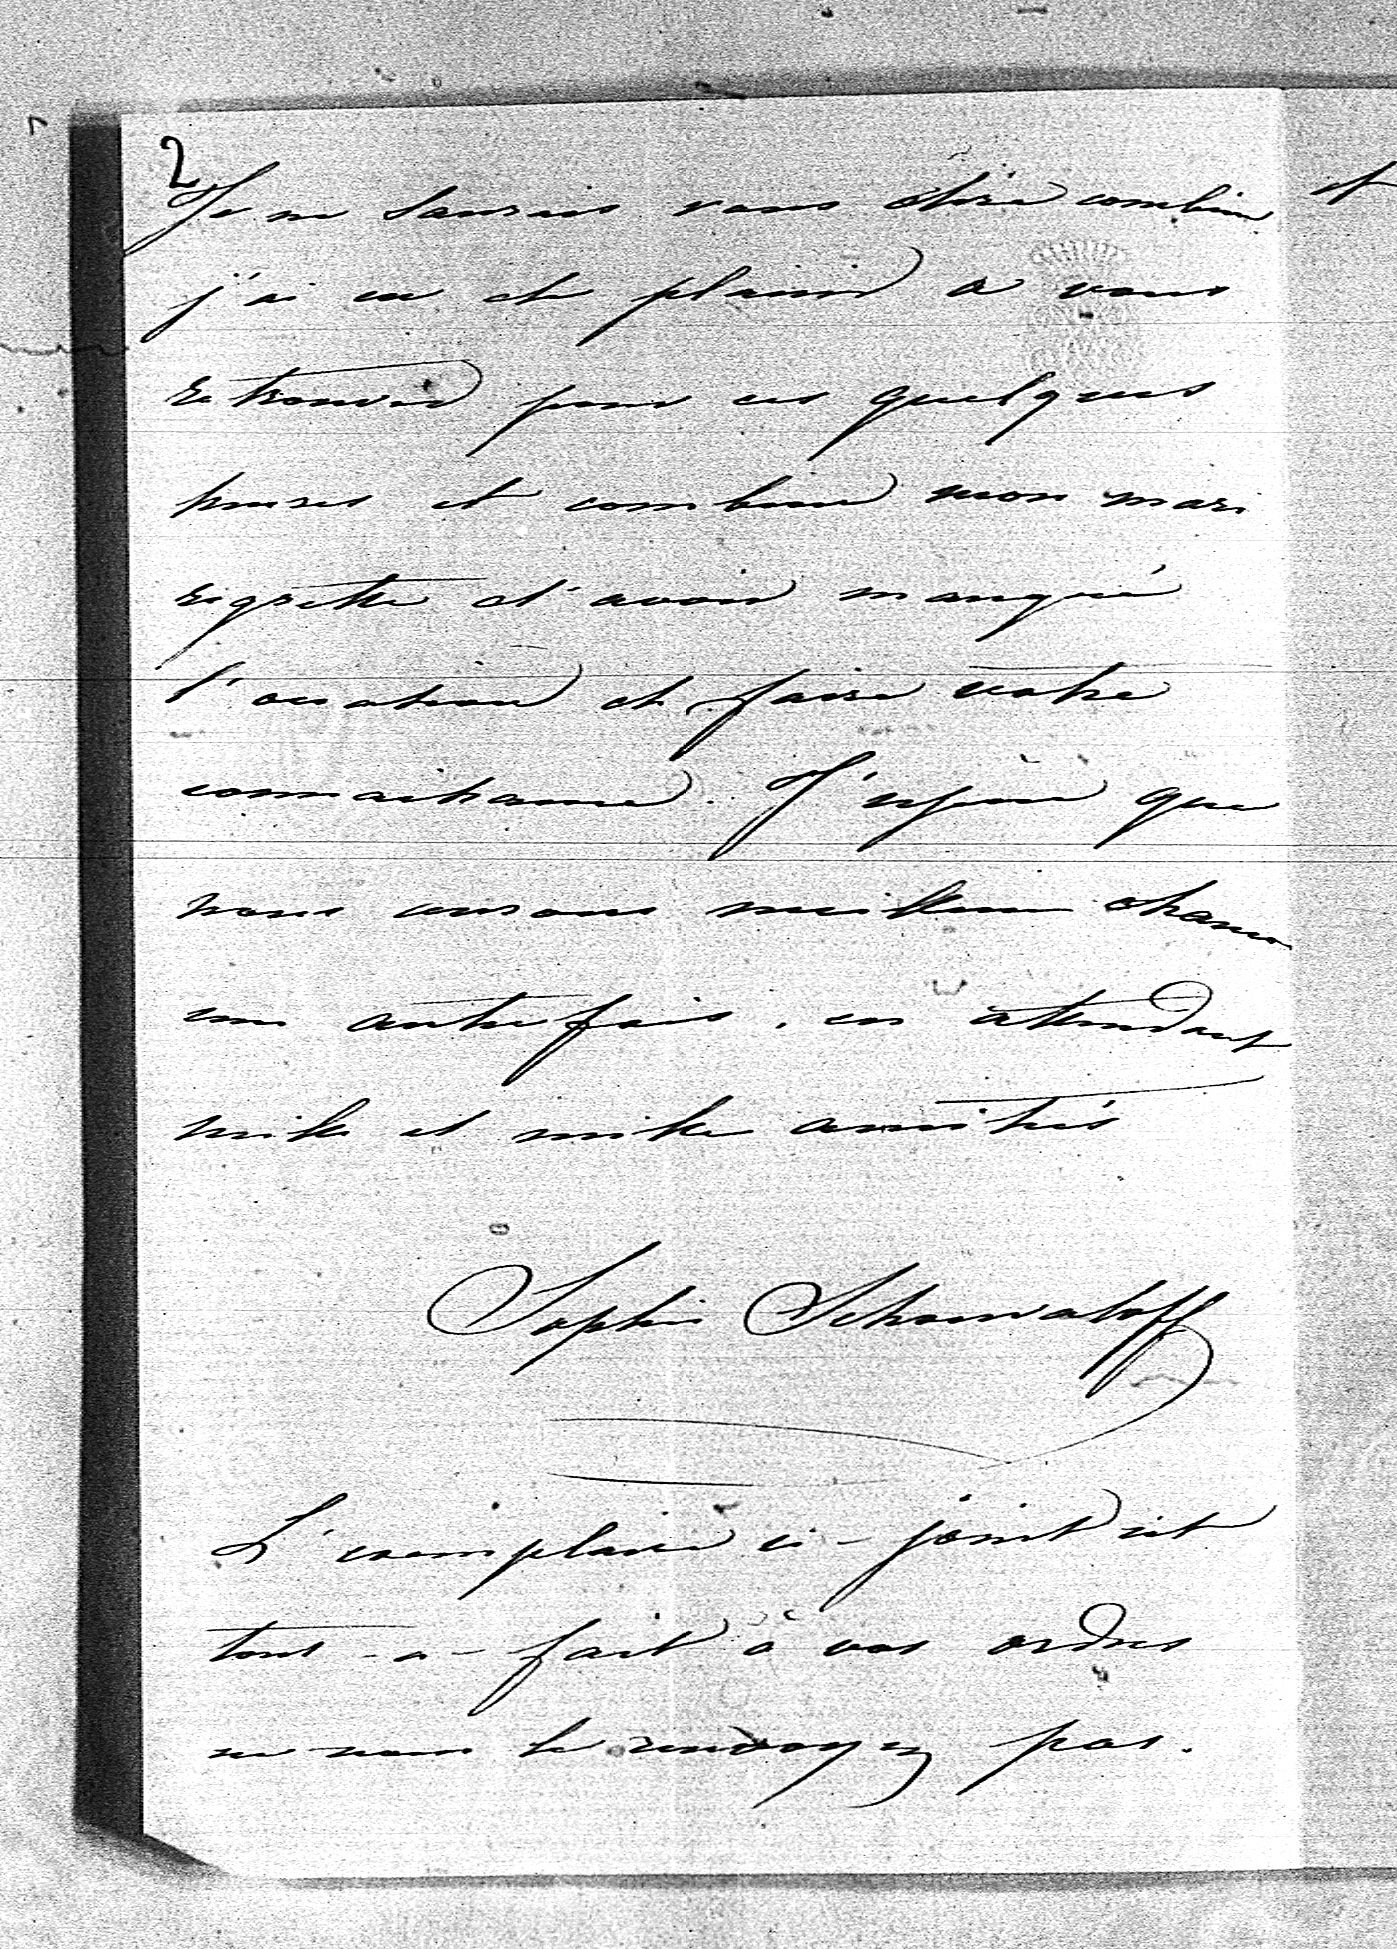 2
Je ne saurais vous dire combien
j'ai eu de plaisir à vous
retrouver pour ces quelques
heures et combien mon mari
regrette d'avoir manqué
l'occasion de faire votre
connaissance. J'espère que
nous aurons meilleure chance
une autre fois. en attendant
mille et mille amitiés
Sophie Schouvaloff
L'exemplaire ci-joint est
tout-a-fait à vos ordres
ne nous le renvoyez pas.